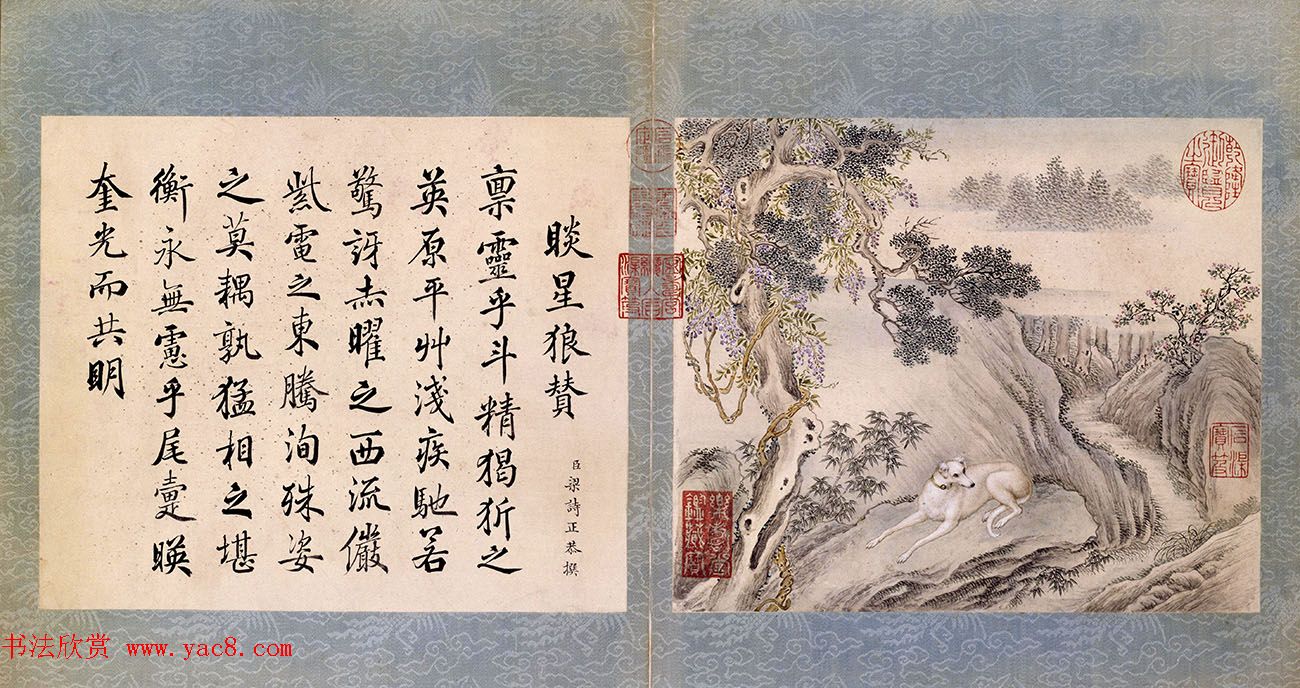 睒星狼賛
臣梁詩正恭撰
稟靈乎斗精猲㹞之
英原平艸淺疾馳若
驚訝赤曜之西流儼
紫電之東騰洵殊姿
之莫耦孰猛相之堪
衡永無慮乎尾疐暎
奎光而共明
乾隆御覽之寶
石渠寶笈
书法欣赏 www.yac8.com